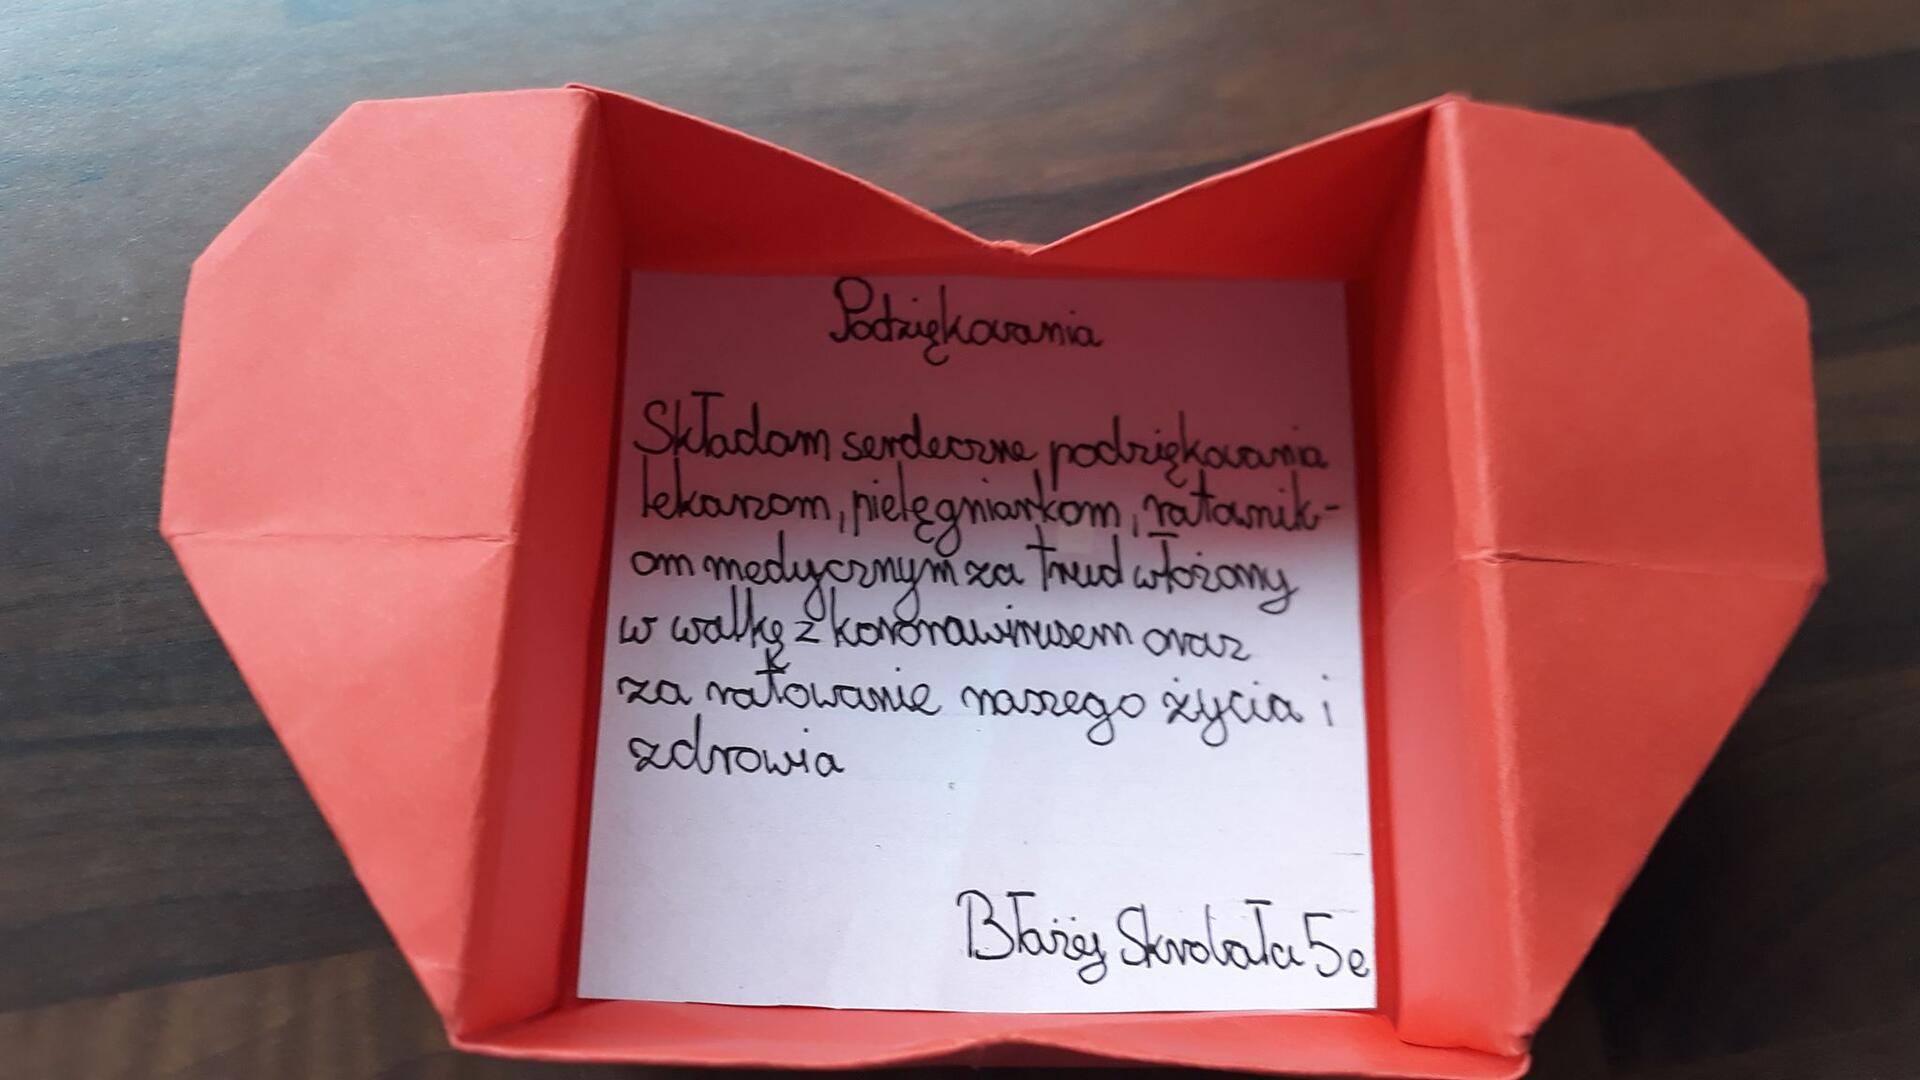 Podziękowania
Składam serdeczne podziękowania
lekarzom, pielęgniarkom, ratownik-
om medycznym za trud włożony
w walkę z koronawirusem oraz
za ratowanie naszego życia i
zdrowia
Błażej Skrobała 5e